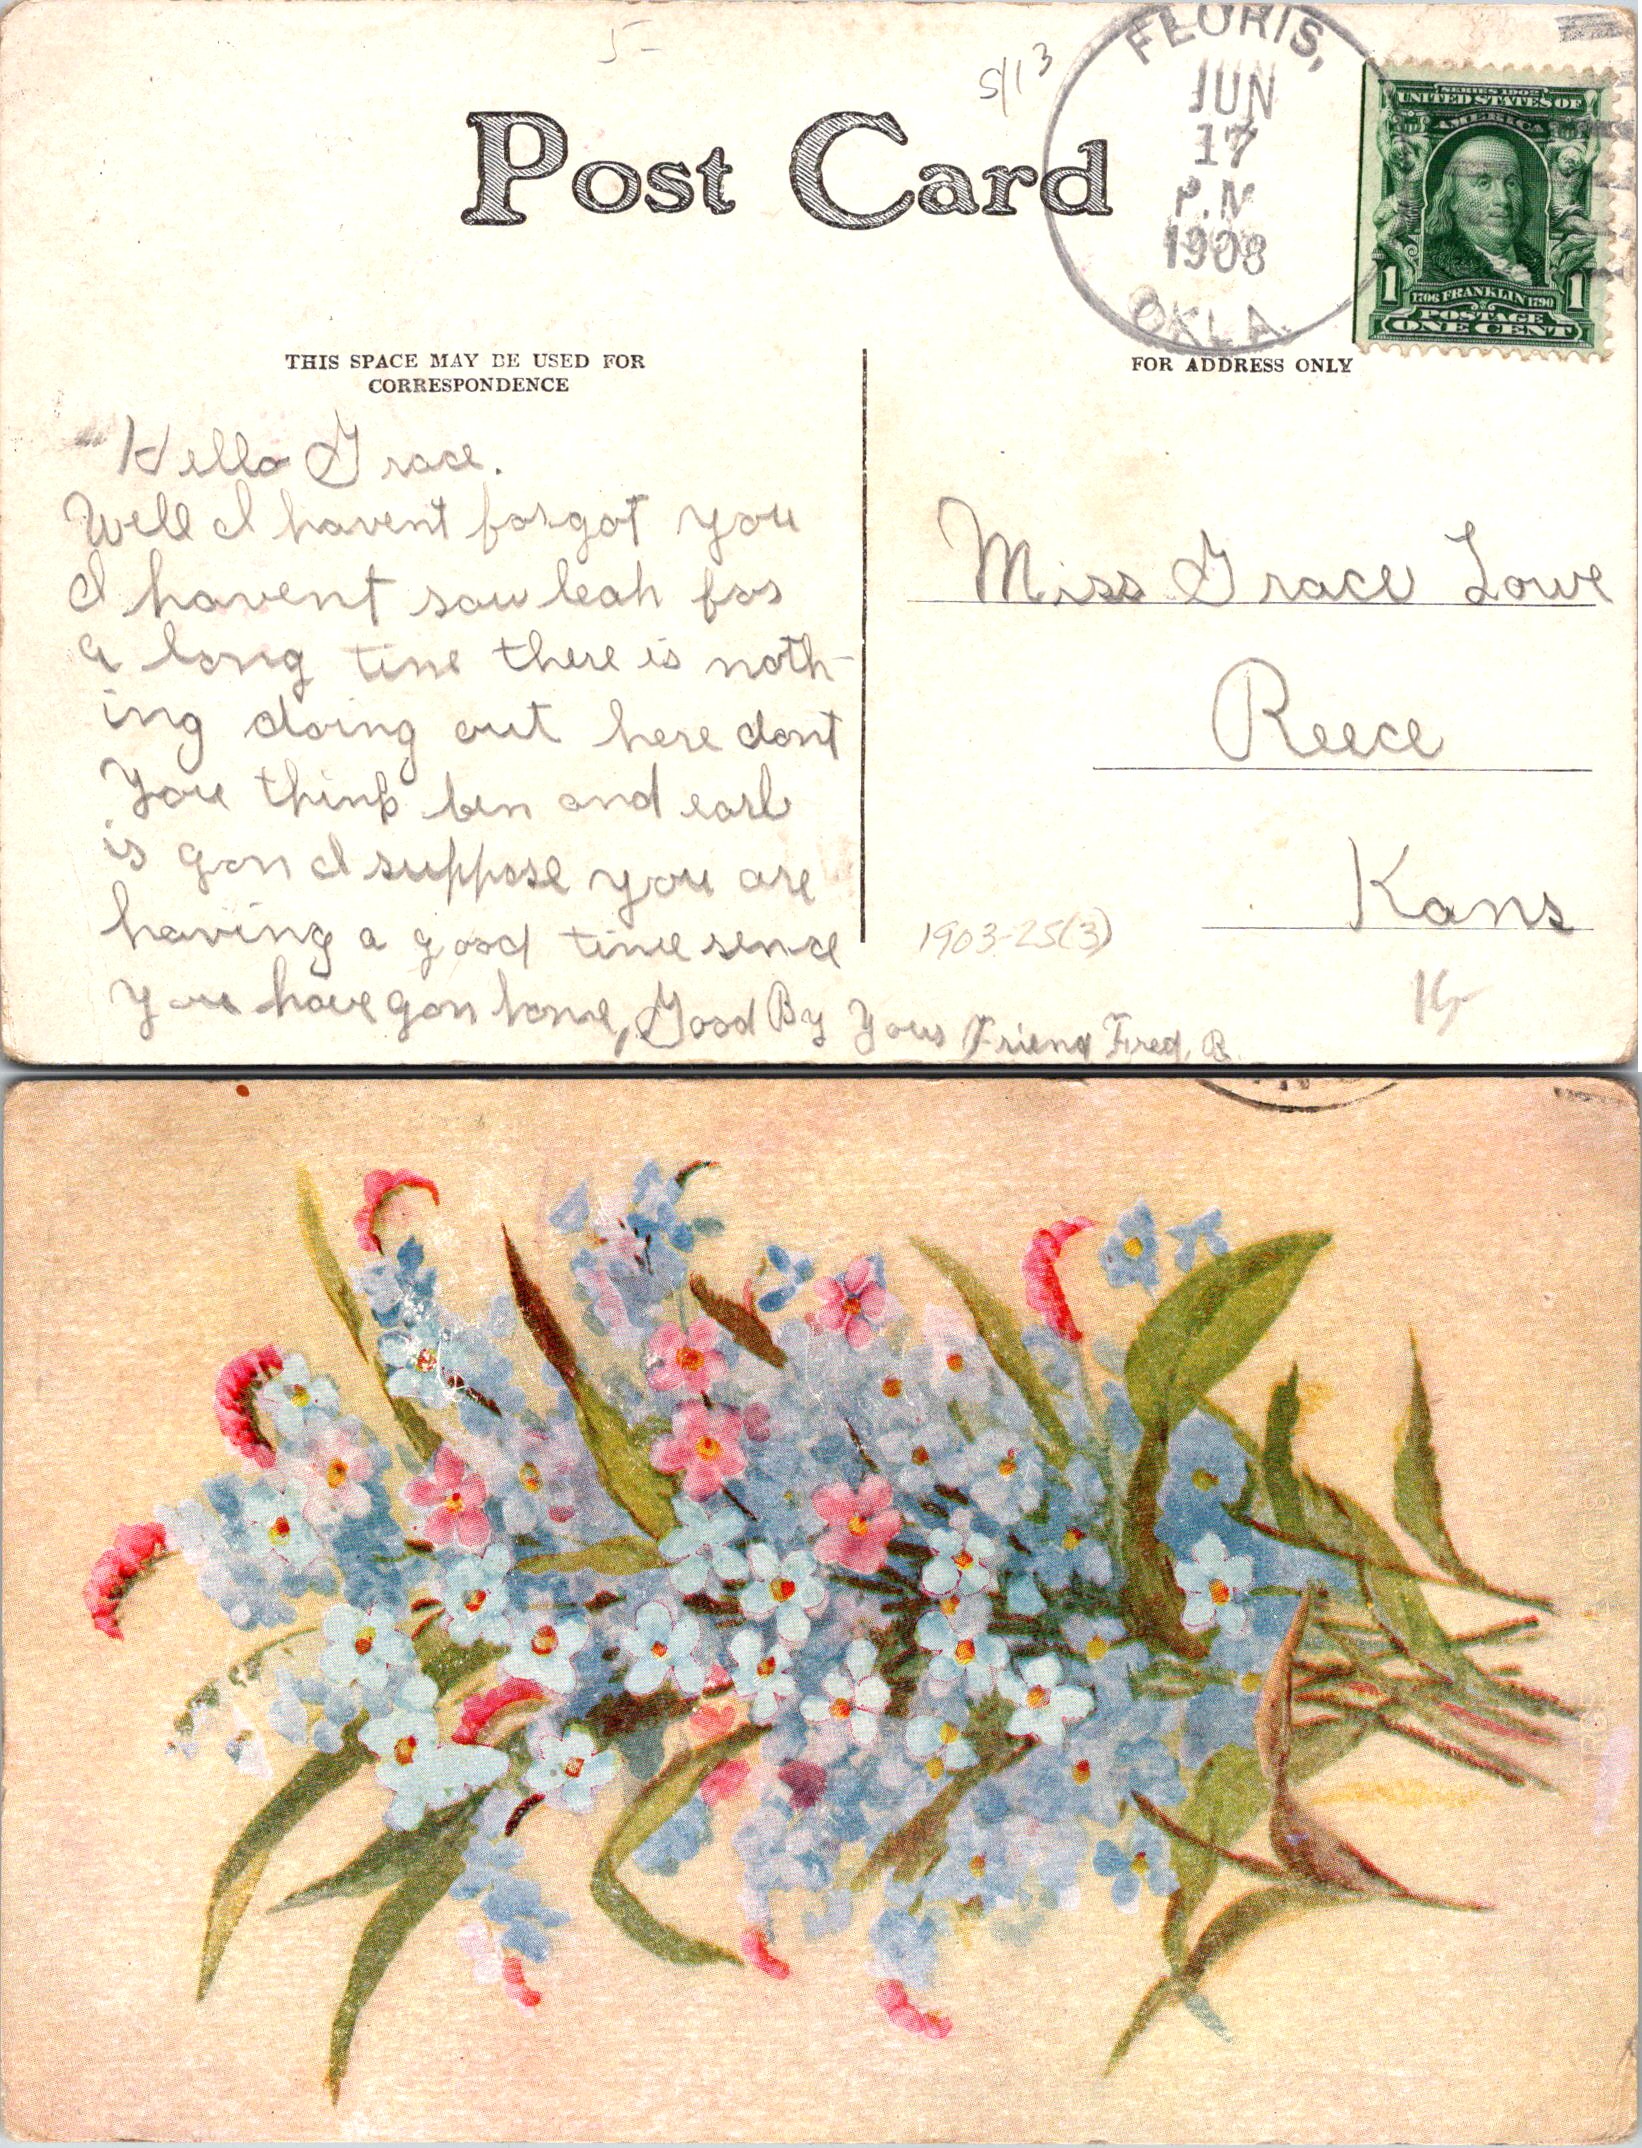 5-
5/13
FLORIS,
JUN
17
P.M
1908
OKLA.
SERIES 1902
UNITED STATES OF
AMERICA
1 1
1706 FRANKLIN 1790
POSTAGE
ONE CENT
Post Card
THIS SPACE MAY BE USED FOR
CORRESPONDENCE
FOR ADDRESS ONLY
Hello Grace.
Well I havent forgot you
I havent saw leah for
a long time there is noth-
ing doing out here dont
You think ben and earl
is gon I suppose you are
having a good time sence
you have gon home, Good By Yours Friend Fred. R.
Miss Grace Lowe
Reece
Kans
1903-25(3)